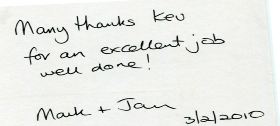 Many thanks Kev
for an excellent job
well done!
Mark + Jan
3/2/2010